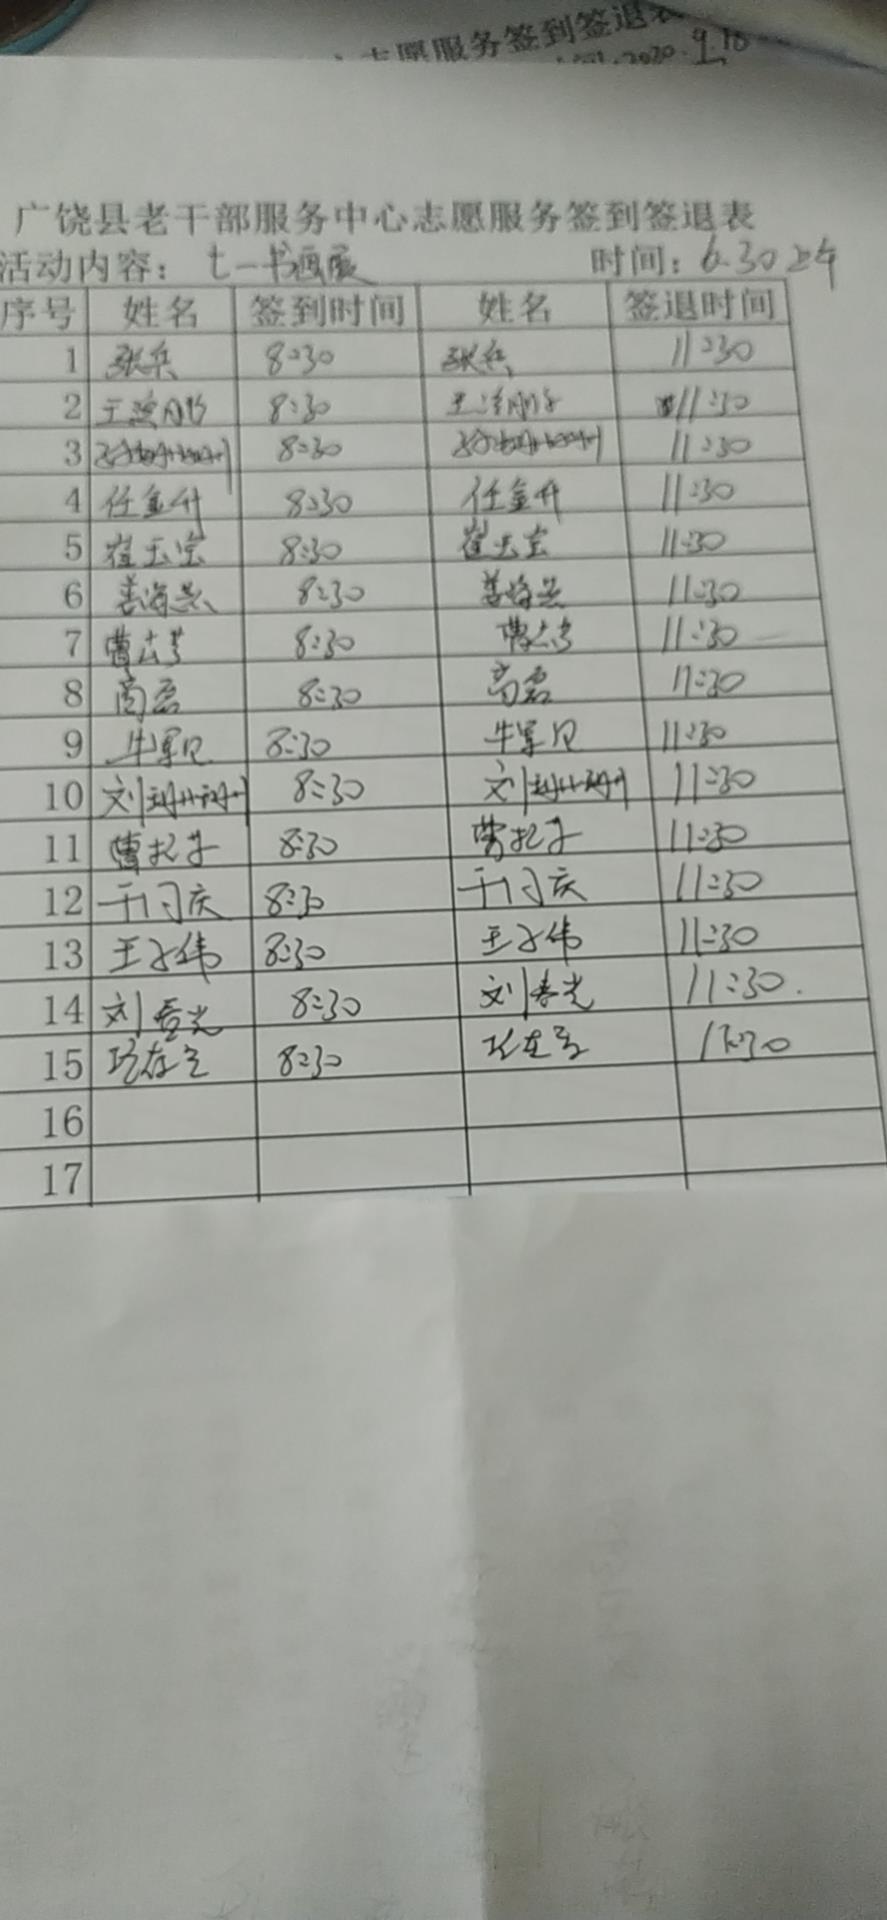 志愿服务签到签退表
2020.9.18
广饶县老干部服务中心志愿服务签到签退表
活动内容：七一书画展 时间：6.30上午
序号 姓名 签到时间 姓名 签退时间
1 张兵 8:30 张兵 11:30
2 8:30 11:30
3 8:30 11:30
4 任金升 8:30 任金升 11:30
5 崔玉宝 8:30 崔玉宝 11:30
6 8:30 11:30
7 8:30 11:30
8 高磊 8:30 高磊 11:30
9 牛军 8:30 牛军 11:30
10 刘 8:30 刘 11:30
11 曹 8:30 曹 11:30
12 8:30 11:30
13 王子伟 8:30 王子伟 11:30
14 刘春光 8:30 刘春光 11:30.
15 8:30 11:30
16
17